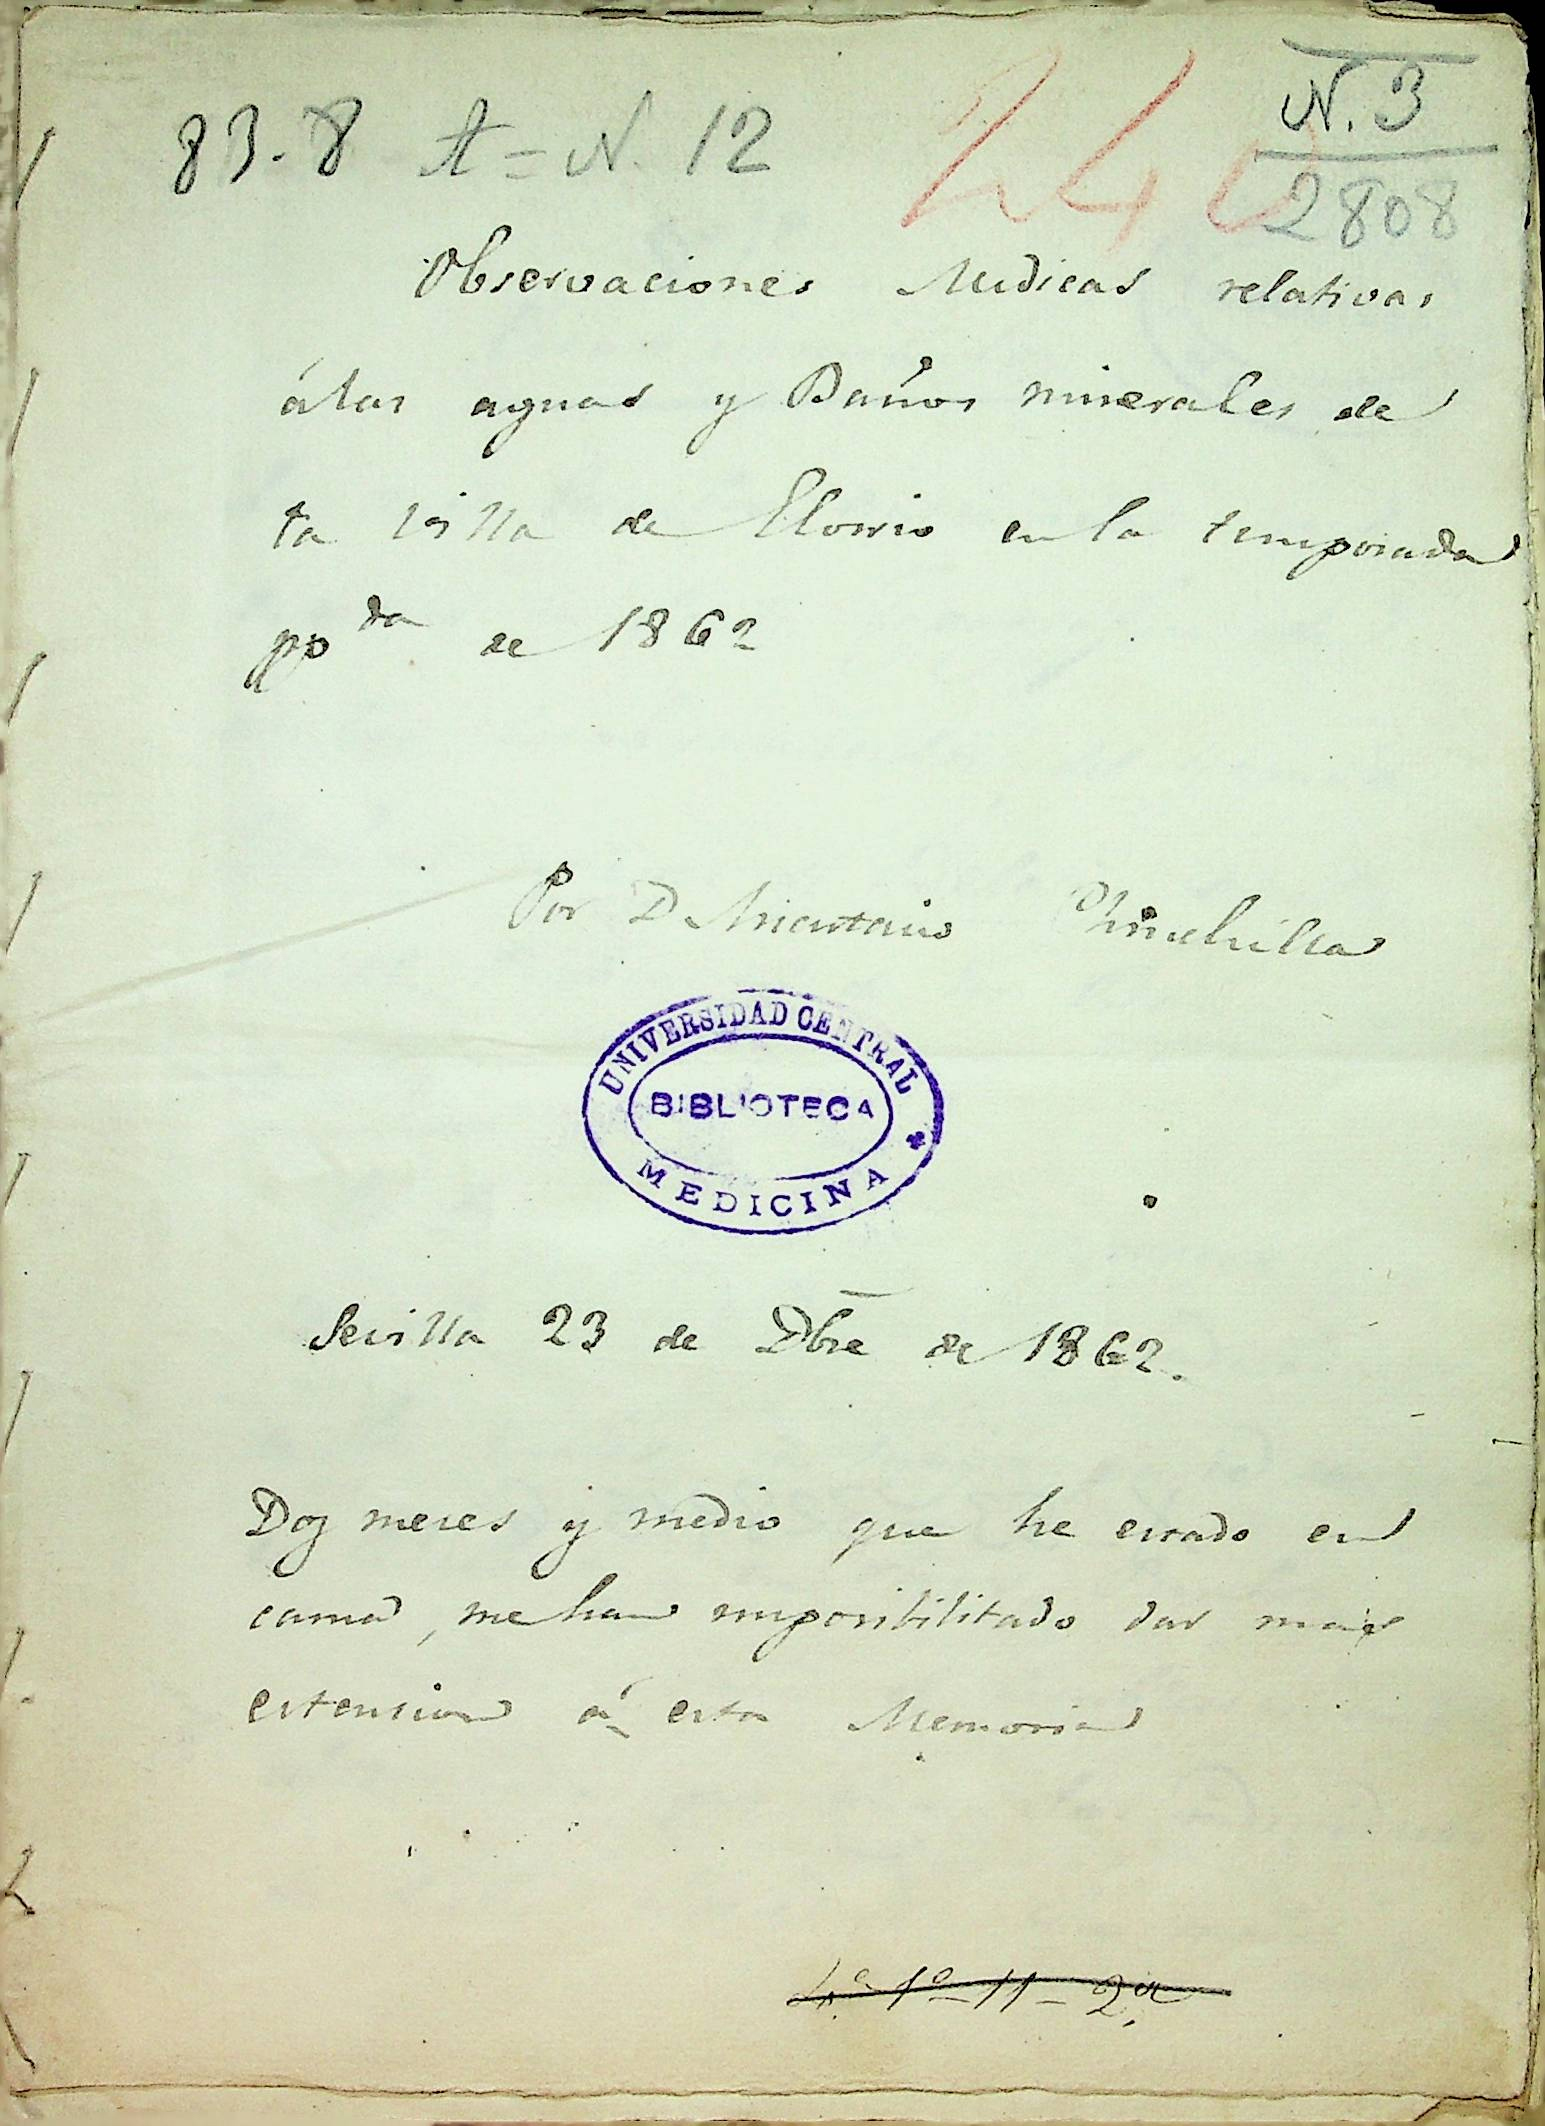 83-8 A = N. 12
240
N. 3
2808
Observaciones Medicas relativas
álas aguas y Baños minerales de
la villa de Elorrio en la temporada
ppda de 1862
Por D. Anastasio Chinchilla
UNIVERSIDAD CENTRAL
BIBLIOTECA
MEDICINA
Sevilla 23 de Dbre de 1862.
Dos meses y medio que he estado en
cama, me han imposibilitado dar mas
estension á esta Memoria
4ª 1ª-11-2ª